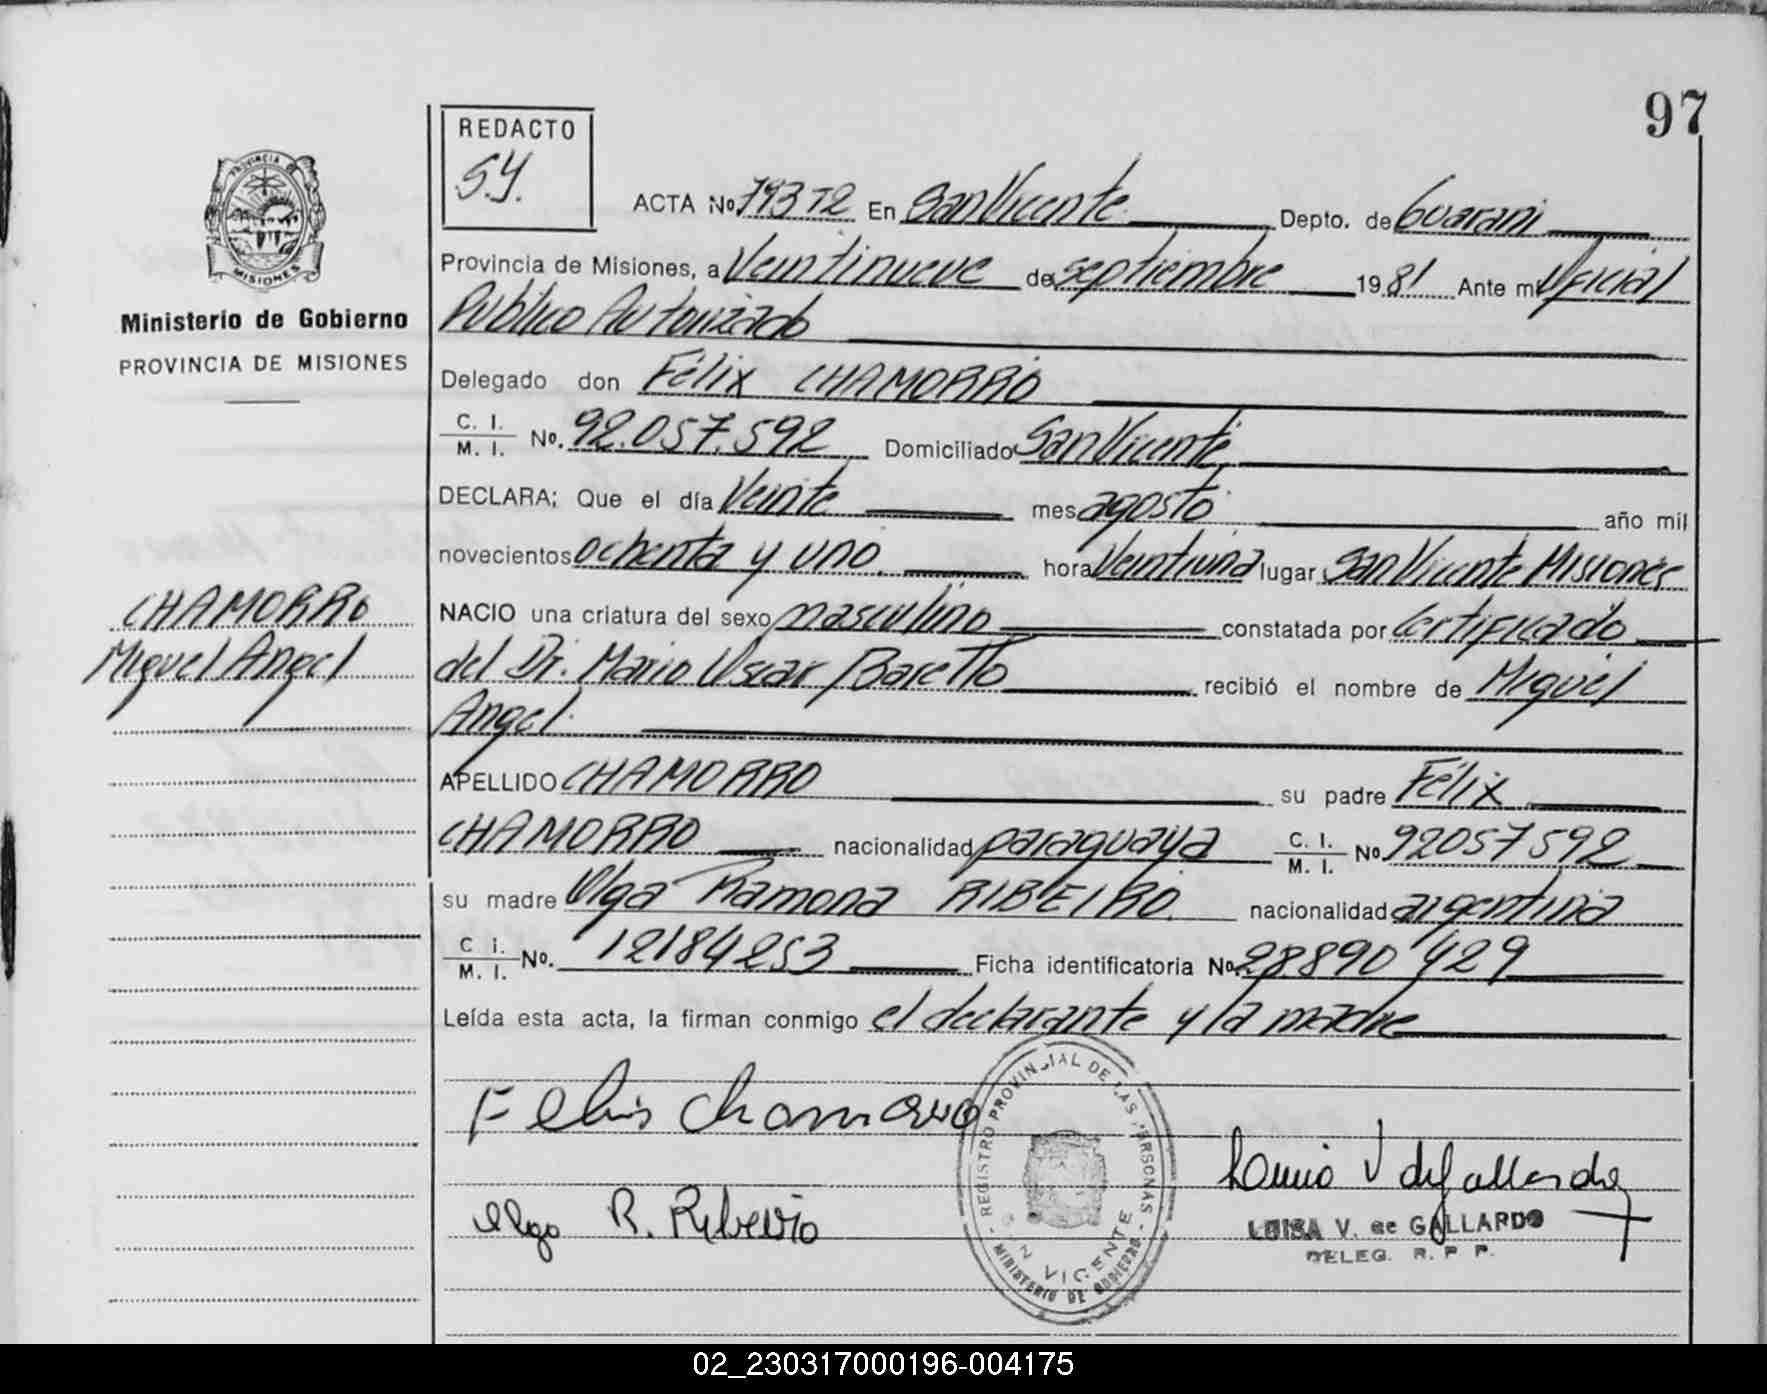 97
REDACTO
S.Y.
PROVINCIA DE
MISIONES
Ministerio de Gobierno
PROVINCIA DE MISIONES
ACTA No 79372 En San Vicente Depto. de Guarani
Provincia de Misiones, a Veintinueve de septiembre 1981 Ante mi Oficial
Publico Autorizado
Delegado don Félix CHAMORRO
C. I. / M. I. No. 92.057.592 Domiciliado San Vicente
DECLARA; Que el día Veinte mes agosto año mil
novecientos ochenta y uno hora Veintiuna lugar San Vicente Misiones
NACIO una criatura del sexo masculino constatada por Certificado
del Dr. Mario Oscar Baretto recibió el nombre de Miguel
Angel.
APELLIDO CHAMORRO su padre Félix
CHAMORRO nacionalidad paraguaya C. I. / M. I. No 92057592
su madre Olga Ramona RIBEIRO. nacionalidad argentina
C i. / M. I. No. 12184253 Ficha identificatoria No. 28890429
Leída esta acta, la firman conmigo el declarante y la madre
CHAMORRO
Miguel Angel
Felix Chamorro
Olga R. Ribeiro
REGISTRO PROVINCIAL DE LAS PERSONAS
SAN VICENTE
MINISTERIO DE GOBIERNO
Luisa V de Gallardo
LUISA V. de GALLARDO
DELEG. R. P P.
02_230317000196-004175